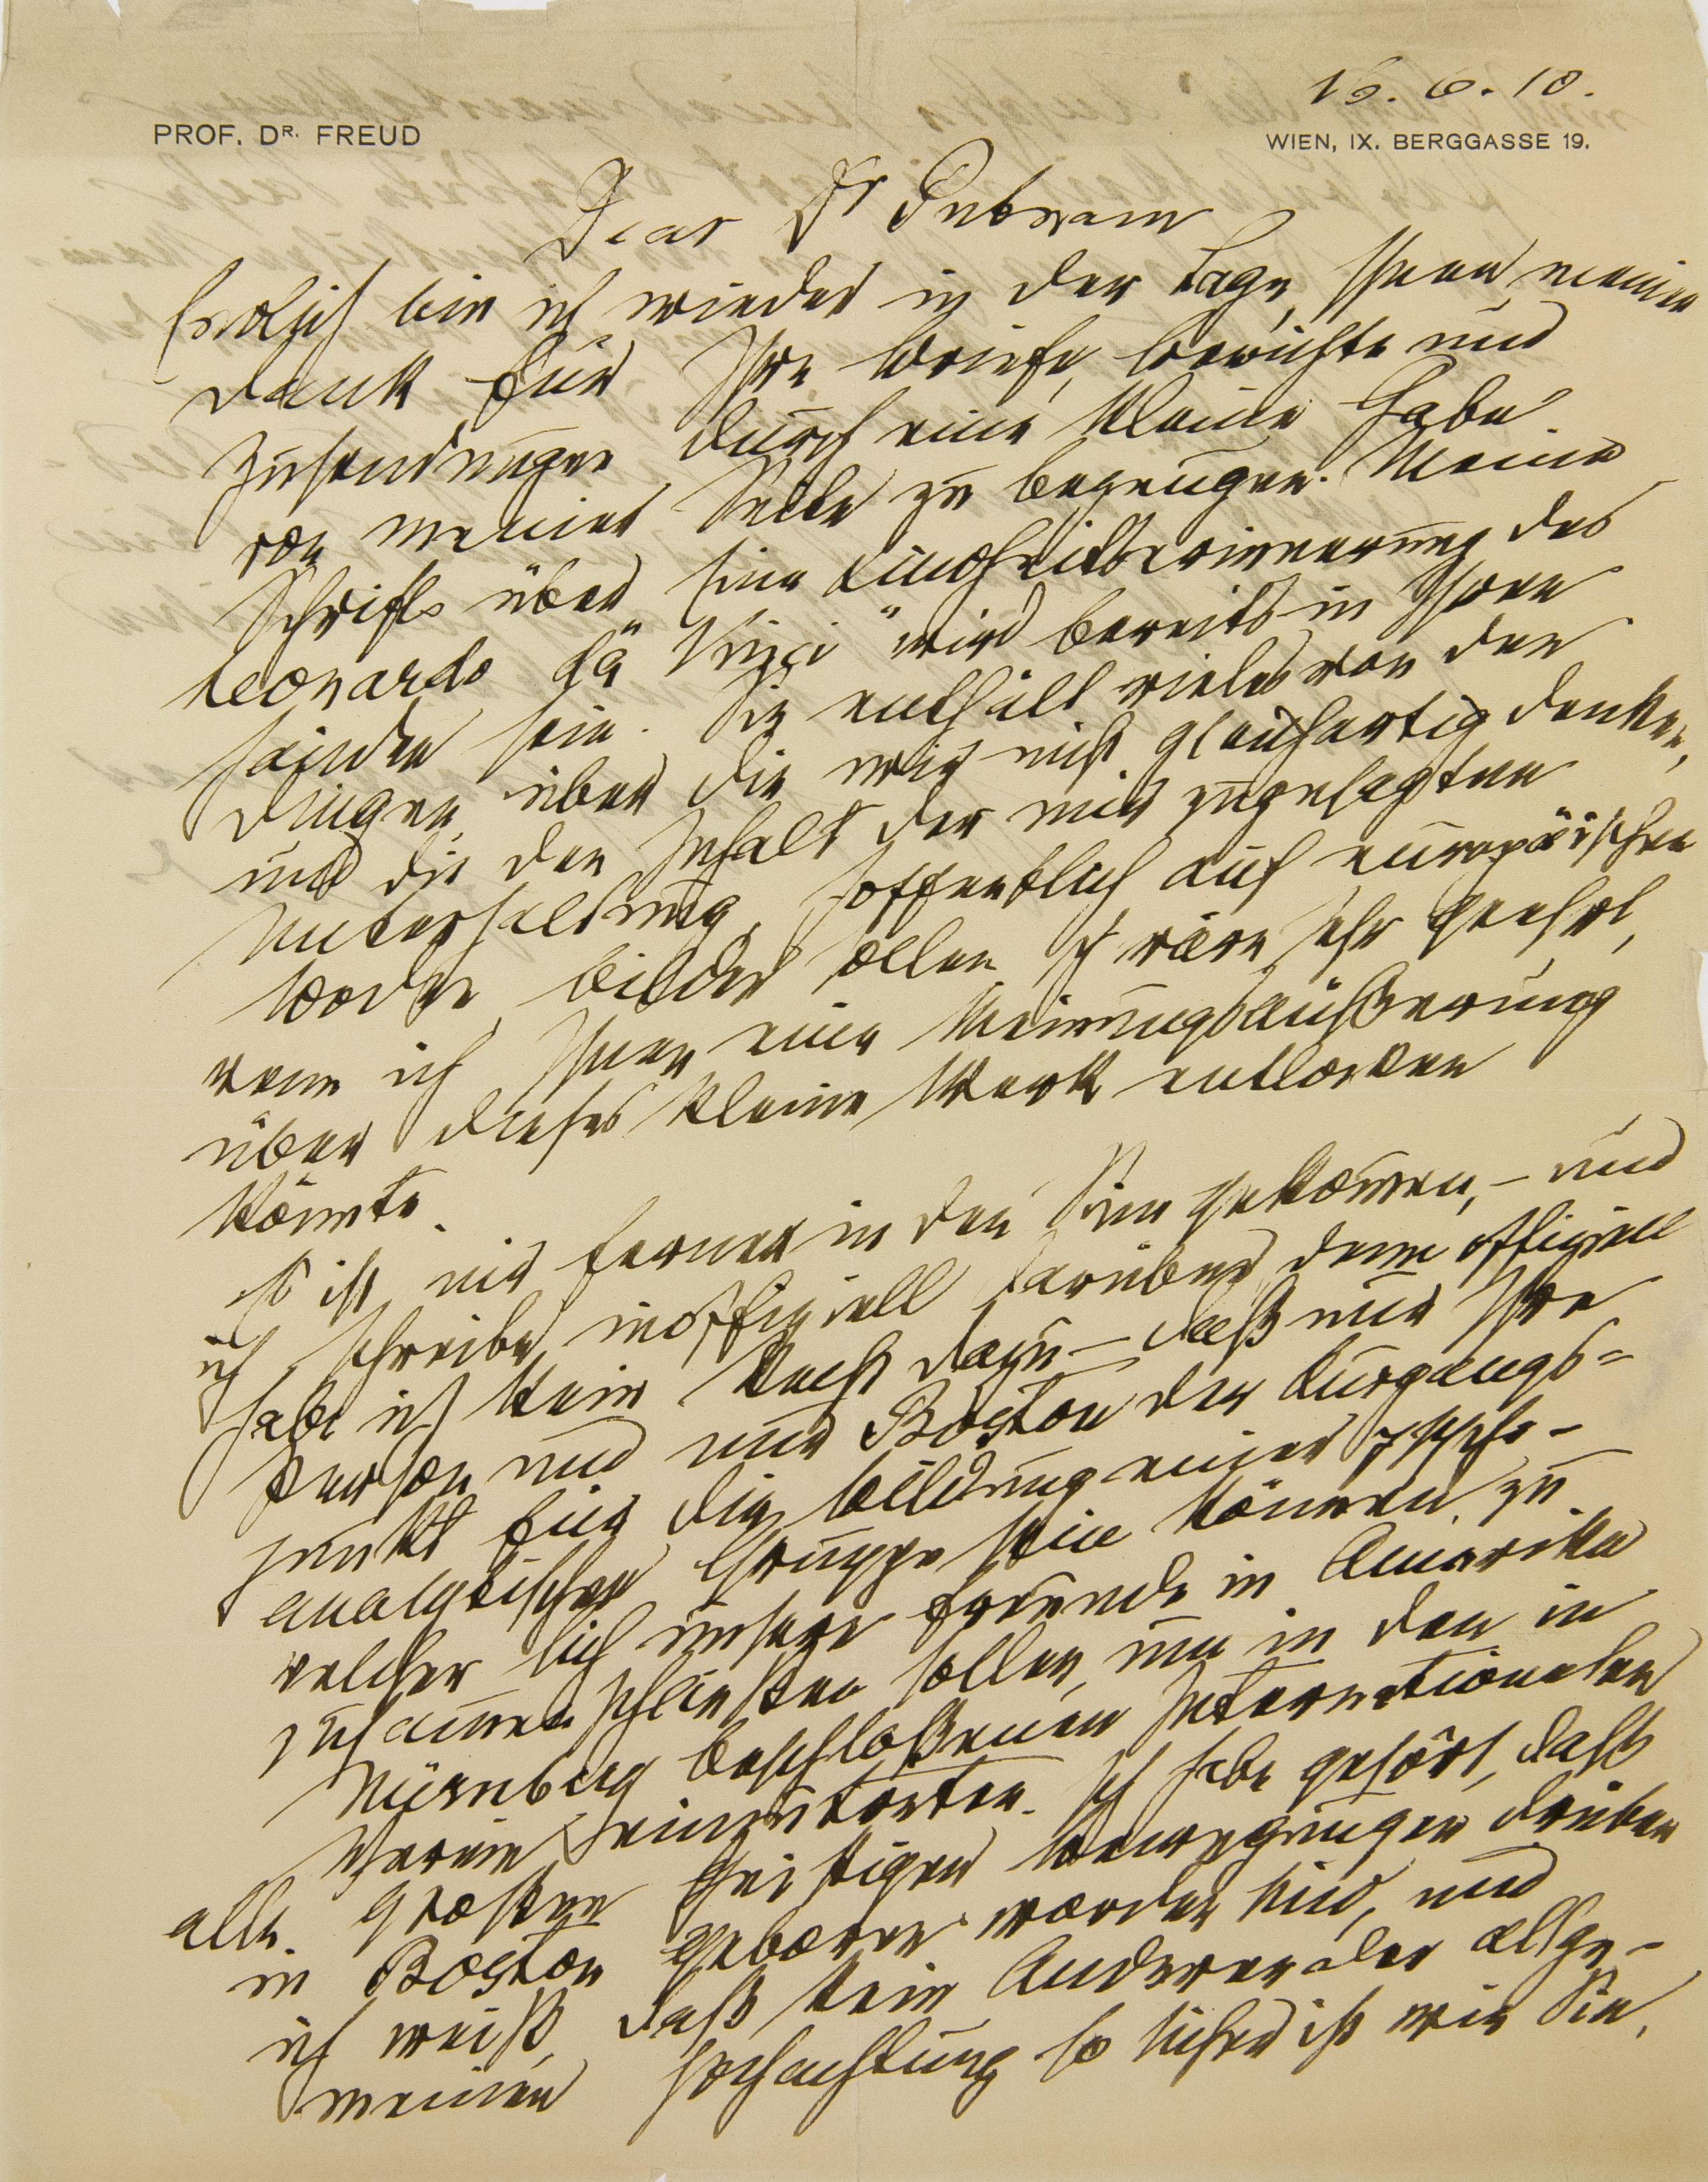 16. 6. 10.
PROF. DR. FREUD
WIEN, IX. BERGGASSE 19.
Dear Dr Putnam
Endlich bin ich wieder in der Lage, Ihnen meinen
Dank für Ihre Briefe, Berichte und
Zusendungen durch eine kleine Gabe
von meiner Seite zu bezeugen. Meine
Schrift über eine Kindheitserinnerung des
Leonardo da Vinci" wird bereits in Ihren
Händen sein. Sie enthält vieles von den
Dingen, über die wir nicht gleichartig denken,
und die den Inhalt der mir zugesagten
Unterhaltung, hoffentlich auf europäischem
Boden, bilden sollen. Ich wäre sehr geehrt,
wenn ich Ihnen eine Meinungsäußerung
über dieses kleine Werk entlocken
könnte.
Es ist mir ferner in den Sinn gekommen, – und
ich schreibe inoffiziell darüber, denn offiziell
habe ich kein Recht dazu – daß nur Ihre
Person und nur Boston der Ausgangs=
punkt für die Bildung einer psycho-
analytischen Gruppe sein können, zu
welcher sich unsere Freunde in Amerika
zusammenschließen sollen, um in den in
Nürnberg beschloßenen Internationalen
Verein einzutreten. Ich habe gehört, daß
alle großen geistigen Bewegungen drüben
in Boston geboren worden sind, und
ich weiß, daß kein Anderer der allge-
meinen Hochachtung so sicher ist wie Sie,